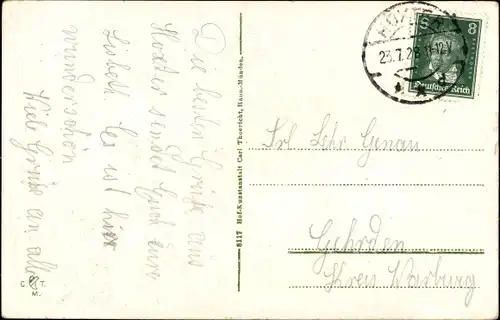 Die besten Grüße aus
Höxter sendet Euch Eure
Lisbeth. Es ist hier
wunderschön
Viele Grüße an alle
8117 Hof-Kunstanstalt Carl Thoericht, Hann.-Münden.
C. T.
M.
HÖXTER
23.7.28 11-12V
8 8
Deutsches Reich
Frl. Lehr. Genau
Gehrden
Kreis Warburg